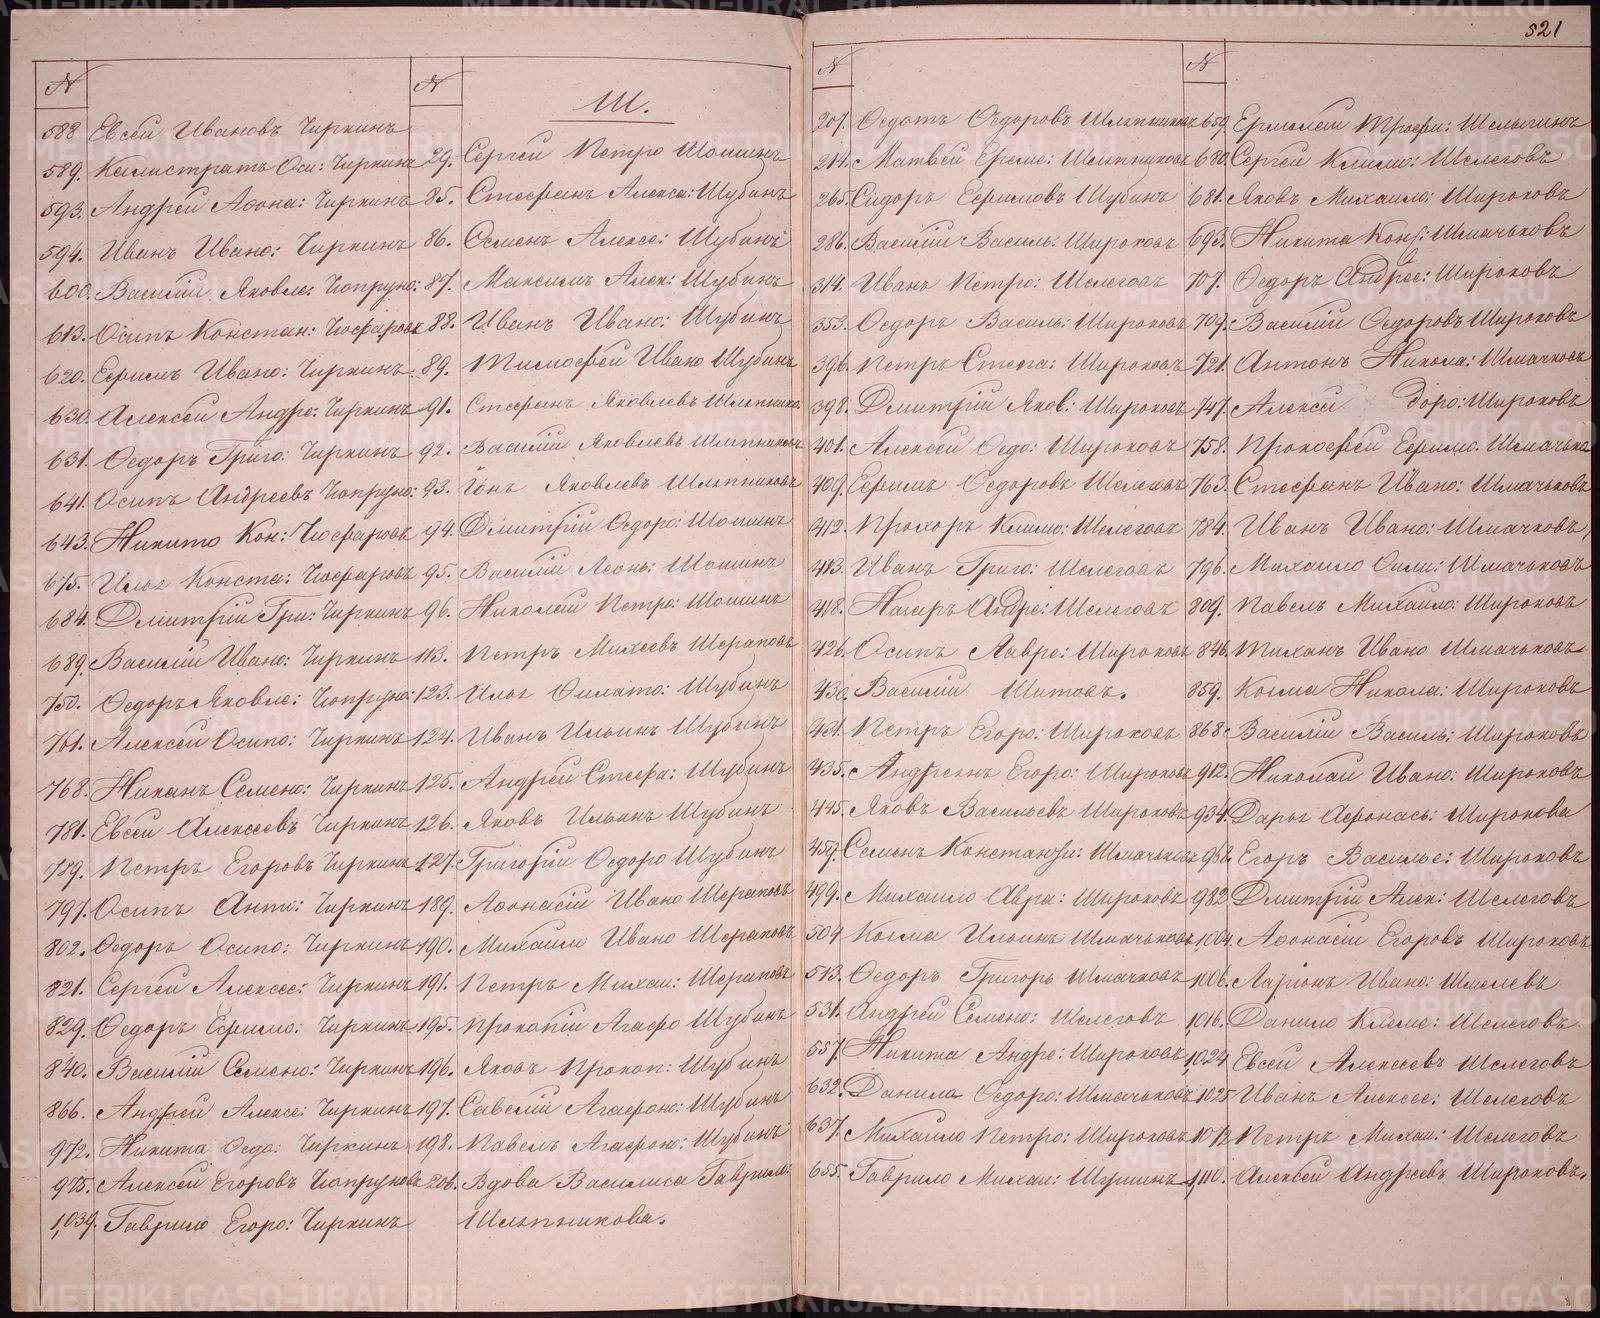 521
№
588. Евсей Ивановъ Чиркинъ
589. Калистратъ Оси: Чиркинъ
593. Андрей Аѳона: Чиркинъ
594. Иванъ Ивано: Чиркинъ
600. Василій Яковле: Чопруно:
613. Осипъ Констан: Чюфаровъ
620. Ефимъ Ивано: Чиркинъ
630. Алексей Андре: Чиркинъ
631. Ѳедоръ Григо: Чиркинъ
641. Осипъ Андреевъ Чопруно:
643. Никито Кон: Чюфаровъ
675. Илья Конста: Чюфаровъ
684. Дмитрій Гри: Чиркинъ
689. Василій Ивано: Чиркинъ
750. Ѳедоръ Яковле: Чопруно:
761. Алексей Осипо: Чиркинъ
768. Никанъ Семено: Чиркинъ
781. Евсей Алексеевъ Чиркинъ
789. Петръ Егоровъ Чиркинъ
797. Осипъ Анти: Чиркинъ
802. Ѳедоръ Осипо: Чиркинъ
821. Сергей Алексее: Чиркинъ
829. Ѳедоръ Ефимо: Чиркинъ
840. Василій Семено: Чиркинъ
866. Андрей Алексе: Чиркинъ
972. Никита Ѳедо: Чиркинъ
975. Алексей Егоровъ Чопруновъ
1,039. Гаврило Егоро: Чиркинъ
№
Ш.
29. Сергей Петро Шошинъ
85. Стефанъ Алекса: Шубинъ
86. Семенъ Алексе: Шубинъ
87. Максимъ Алек: Шубинъ
88. Иванъ Ивано: Шубинъ
89. Тимофей Ивано Шубинъ
91. Стефанъ Яковлевъ Шляпнико:
92. Василій Яковлевъ Шляпниковъ
93. Іонъ Яковлевъ Шляпниковъ
94. Дмитрій Ѳедоро: Шошинъ
95. Василій Леонь: Шошинъ
96. Николай Петро: Шошинъ
113. Петръ Михеевъ Шераповъ
123. Илья Филато: Шубинъ
124. Иванъ Ильинъ Шубинъ
125. Андрей Стефа: Шубинъ
126. Яковъ Ильинъ Шубинъ
127. Григорій Ѳедоро Шубинъ
189. Аѳонасій Ивано Шераповъ
190. Михаило Ивано Шераповъ
191. Петръ Михаи: Шераповъ
195. Прокопій Агафо Шубинъ
196. Яковъ Прокоп: Шубинъ
197. Савелій Агафоно: Шубинъ
198. Павелъ Агафоно: Шубинъ
206. Вдова Василиса Гаврило:
Шляпникова.
№
207. Ѳедотъ Ѳедоровъ Шляпниковъ
214. Матвей Ереме: Шляпниковъ
265. Сидоръ Ефимовъ Шубинъ
286. Василій Василь: Широковъ
314. Иванъ Петро: Шелеговъ
353. Ѳедоръ Василь: Широковъ
396. Петръ Степа: Широковъ
398. Дмитрій Яков: Широковъ
401. Алексей Ѳедо: Широковъ
409. Ефимъ Ѳедоровъ
412. Прохоръ Климо: Шелеговъ
413. Иванъ Григо: Шелеговъ
418. Назаръ Андре: Шелеговъ
426. Осипъ Лавре: Широковъ
430. Василій Шитовъ.
431. Петръ Егоро: Широковъ
435. Андреянъ Егоро: Широковъ
445. Яковъ Васильевъ Широковъ
459. Семенъ Константи: Шмачьковъ
499. Михаило Авра: Широковъ
504. Козма Ильинъ Шмачьковъ
513. Ѳедоръ Григорь Шмачковъ
531. Андрей Семено: Шелеговъ
557. Никита Андре: Широковъ
632. Данила Ѳедоро: Шмачьковъ
637. Михаило Петро: Широковъ
655. Гаврило Михаи: Шушинъ
№
659. Ермолай Трофи: Шелыгинъ
680. Сергей Климо: Шелеговъ
681. Яковъ Михаило: Широковъ
693. Никита Конс: Шмачьковъ
707. Ѳедоръ Андрее: Широковъ
709. Василій Ѳедоровъ Широковъ
721. Антонъ Никола: Шмачковъ
747. Алексей доро: Широковъ
758. Прокофей Ефимо. Шмачько
763. Стефанъ Ивано: Шмачьковъ
784. Иванъ Ивано: Шмачковъ
796. Михаило Фили: Шмачьковъ
809. Павелъ Михаило: Широковъ
846. Тиханъ Ивано Шмачьковъ
859. Козма Никола: Широковъ
868. Василій Василь: Широковъ
912. Николай Ивано: Широковъ
934. Дарья Афонась: Широкова
968. Егоръ Василье: Широковъ
982. Дмитрій Алек: Шелеговъ
1,004. Аѳонасій Егоровъ Широковъ
1006. Ларіонъ Ивано: Шмелевъ
1,016. Данило Климе: Шелеговъ
1,024. Евсей Алексеевъ Шелеговъ
1025 Иванъ Алексее: Шелеговъ
1072 Петръ Михаи: Шелеговъ
1,110. Алексей Андреевъ Широковъ.
METRIKI.GASO-URAL.RU